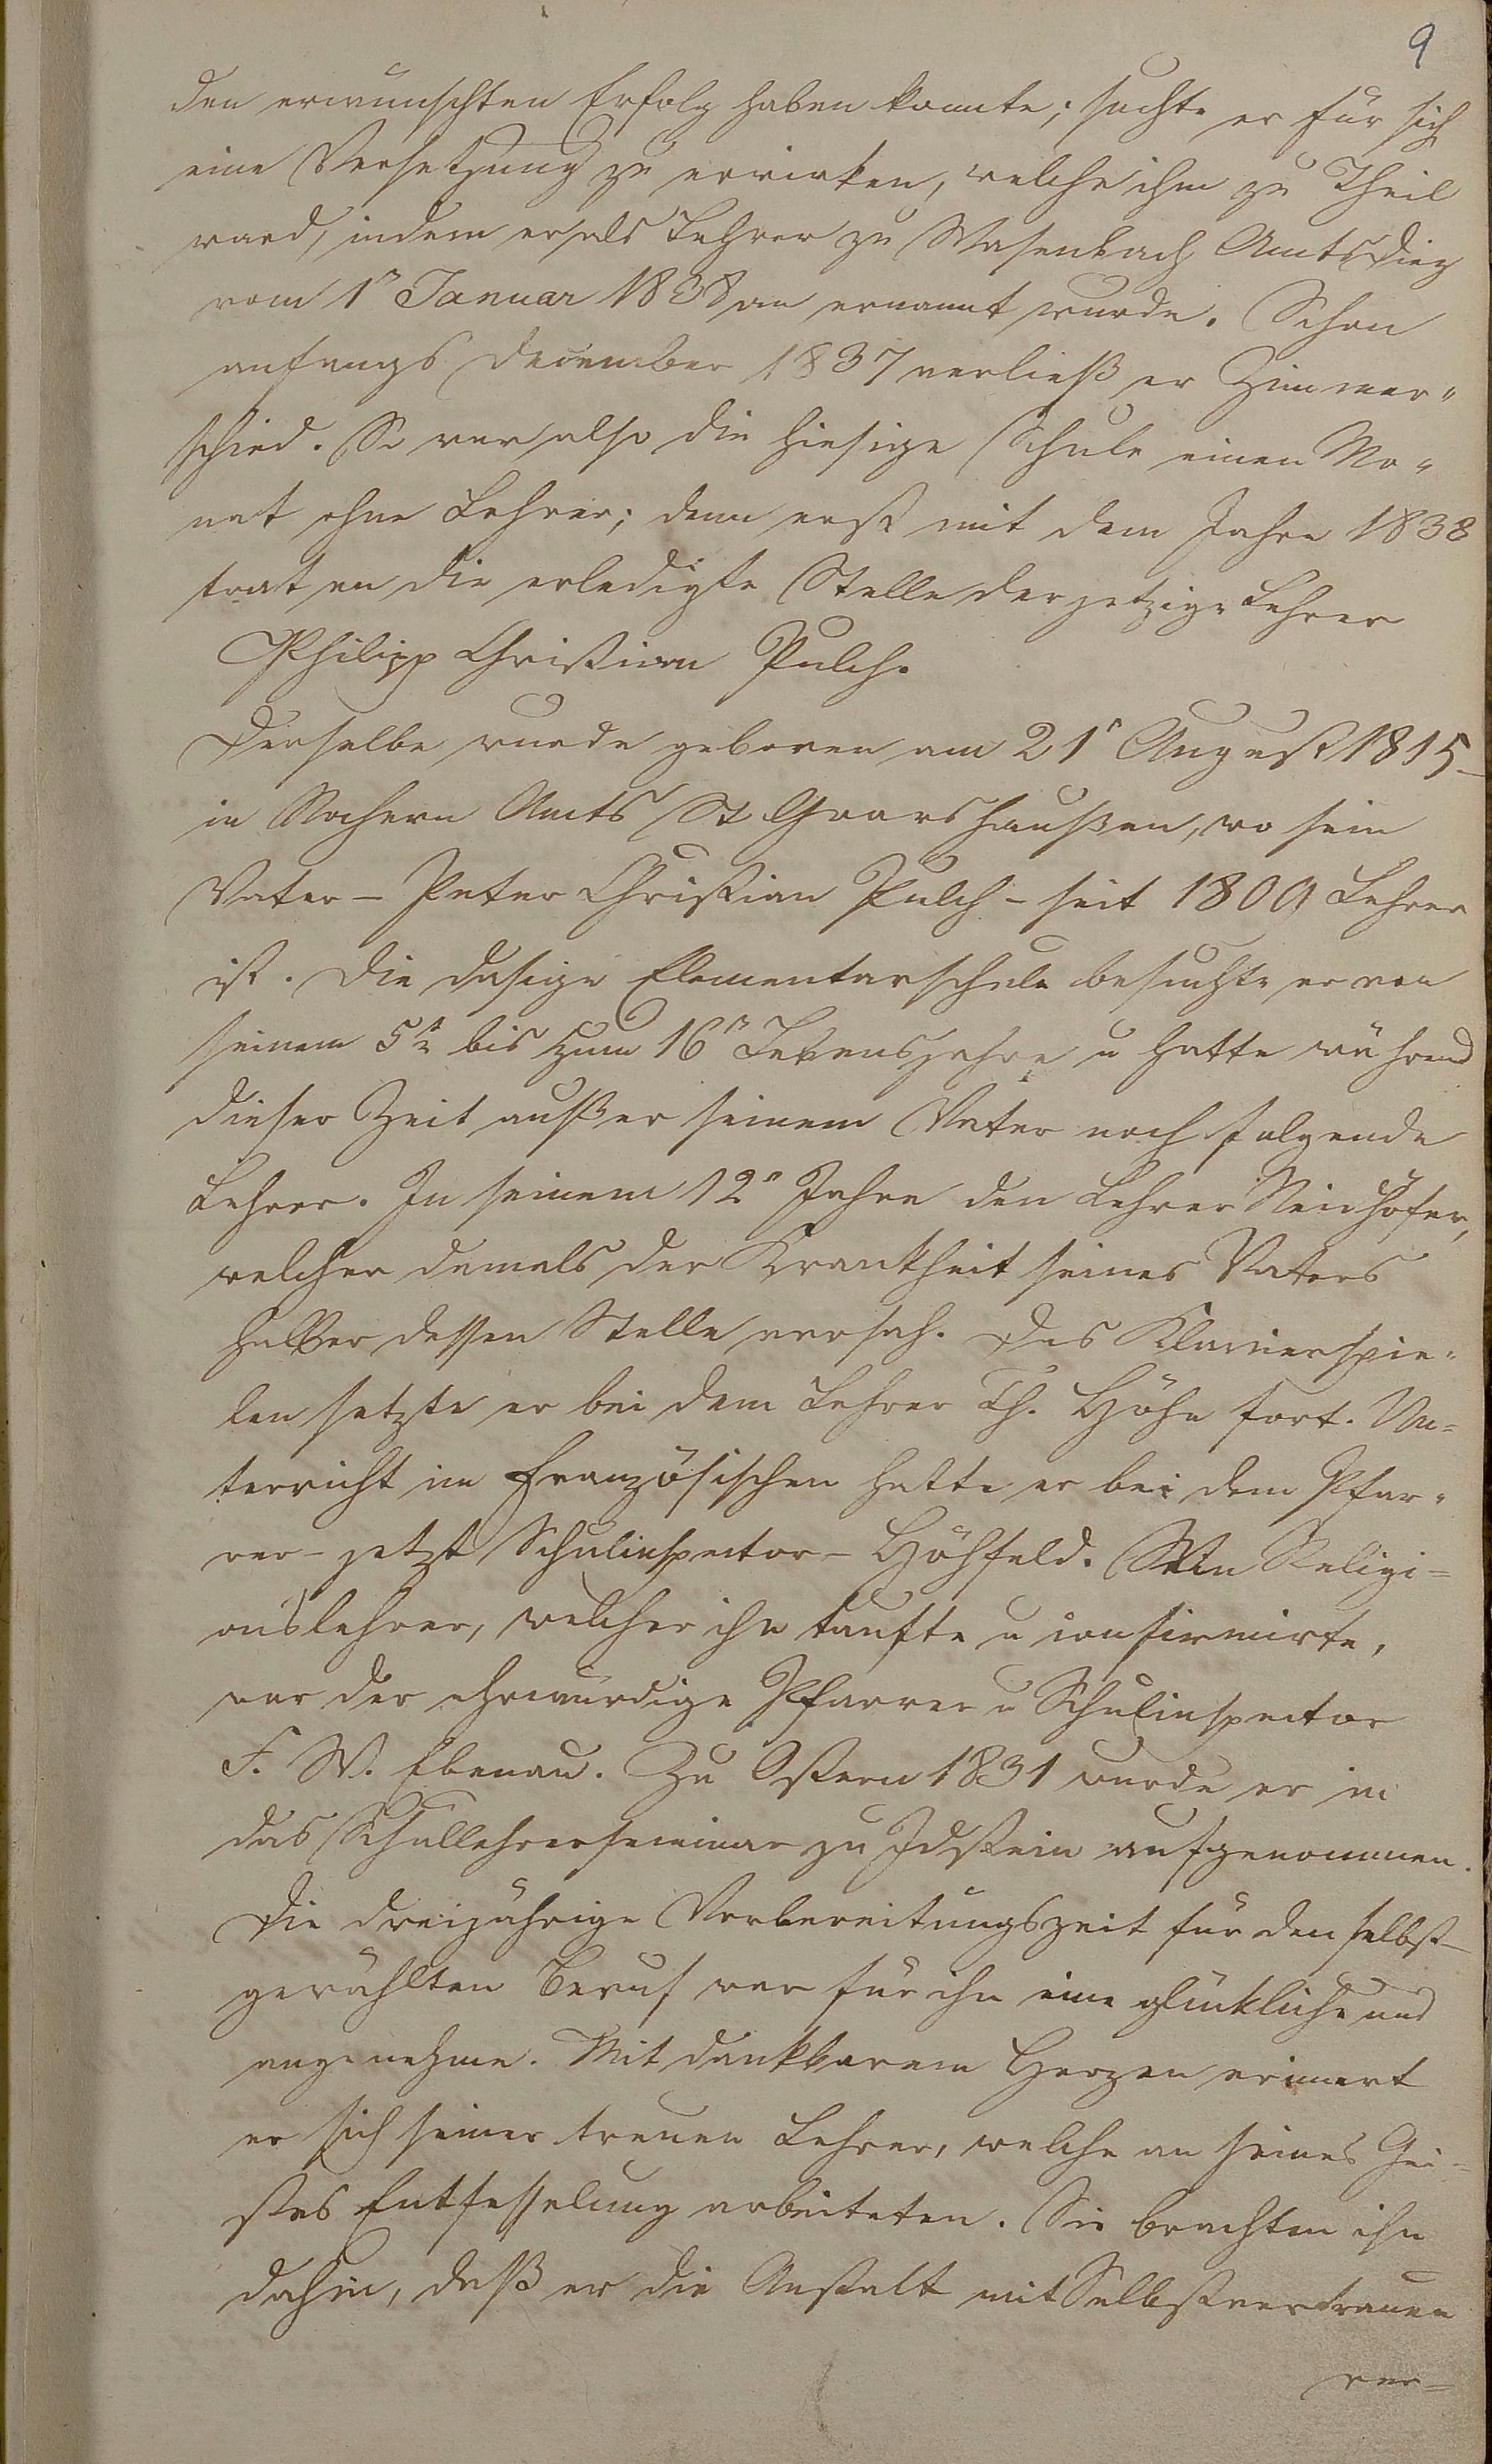 9
den erwünschten Erfolg haben konnte; suchte er für sich
eine Versetzung zu erwirken, welche ihm zu Theil
ward, indem er als Lehrer zu Wasenbach Amts Diez
vom 1n Januar 1838 an ernannt wurde. Schon
anfangs December 1837 verließ er Zimmer„
schied. So war also die hiesige Schule einen Mo„
nat ohne Lehrer; denn erst mit dem Jahre 1838
trat an die erledigte Stelle der jetzige Lehrer
Philipp Christian Pulch.
Derselbe wurde geboren am 21n August 1815
in Nochern Amts St Goarshaußen, wo sein
Vater – Peter Christian Pulch – seit 1809 Lehrer
ist. Die dasige Elementarschule besuchte er von
seinem 5tn bis zum 16n Lebensjahre u hatte während
dieser Zeit außer seinem Vater noch folgende
Lehrer. In seinem 12n Jahre den Lehrer Neidhöfer,
welcher damals der Krankheit seines Vaters
halber dessen Stelle versah. Das Klavierspie„
len setzte er bei dem Lehrer Th. Höhn fort. Un=
terricht im Französischen hatte er bei dem Pfar„
rer – jetzt Schulinspector – Höhfeld. Sein Religi=
onslehrer, welcher ihn taufte u confirmirte,
war der ehrwürdige Pfarrer u Schulinspector
F. W. Ebenau. Zu Ostern 1831 wurde er in
das Schullehrerseminar zu Idstein aufgenommen.
Die dreijährige Vorbereitungszeit für den selbst-
gewählten Beruf war für ihn eine glückliche und
angenehme. Mit dankbarem Herzen erinnert
er sich seiner treuen Lehrer, welche an seines Gei=
stes Entfesselung arbeiteten. Sie brachten ihn
dahin, daß er die Anstalt mit Selbstvertrauen
ver=